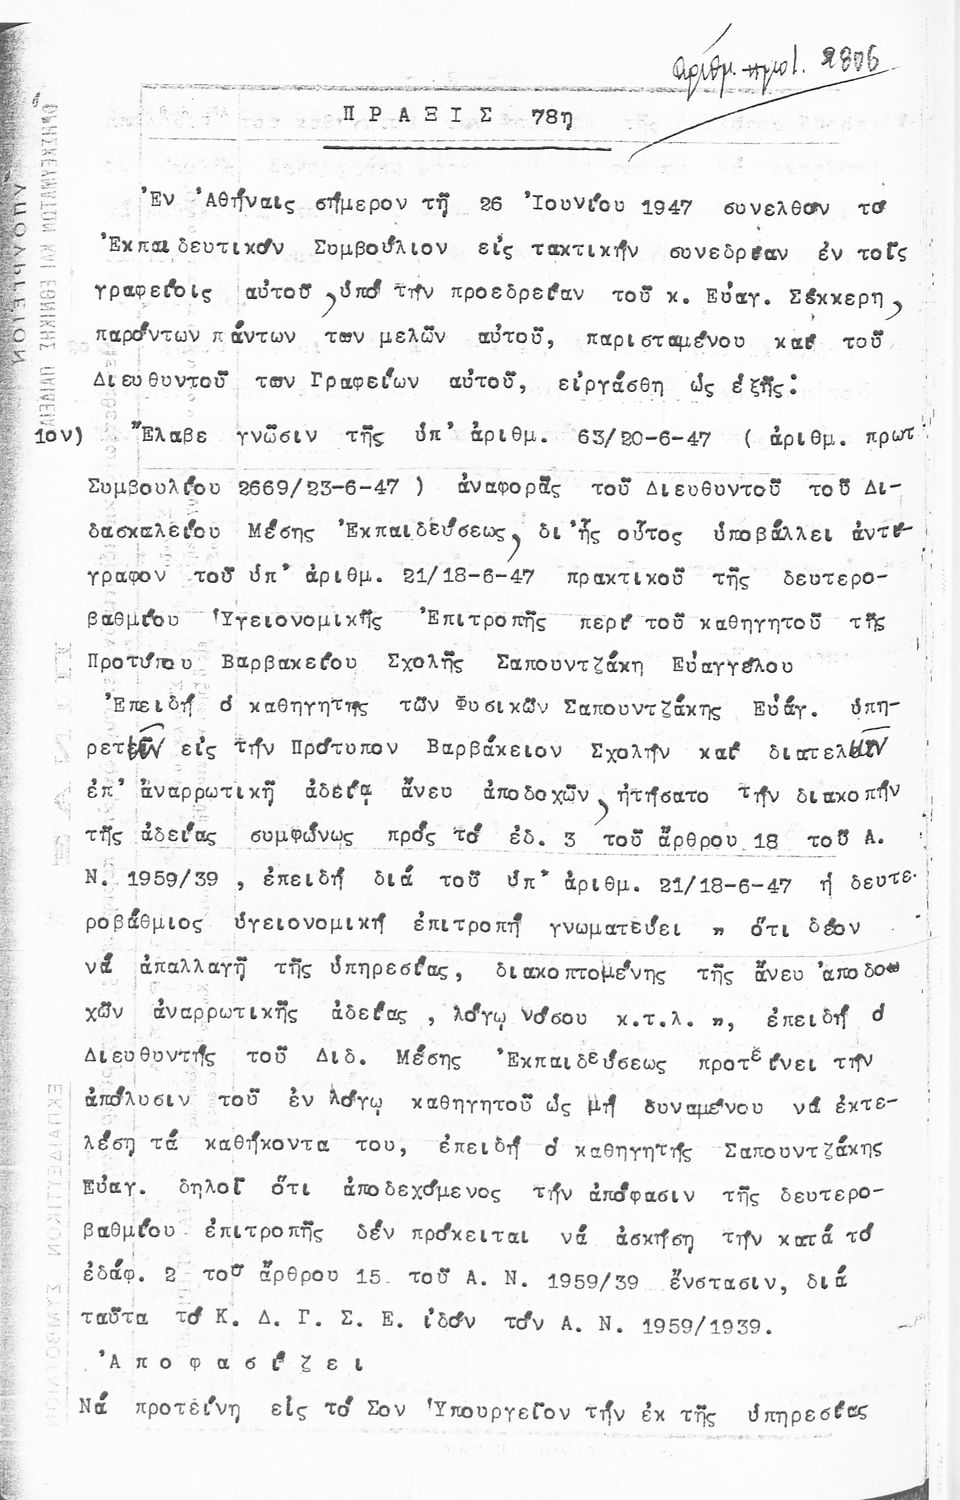 ἀριθμ. πρωτ. 2806
Π Ρ Α Ξ Ι Σ 78η
Ἐν Ἀθήναις σήμερον τῇ 26 Ἰουνίου 1947 συνελθόν τό
Ἐκπαιδευτικόν Συμβούλιον εἰς τακτικήν συνεδρίαν ἐν τοῖς
γραφείοις αὐτοῦ, ὑπό τήν προεδρείαν τοῦ κ. Εὐαγ. Σέκκερη,
παρόντων πάντων των μελῶν αὐτοῦ, παρισταμένου καί τοῦ
Διευθυντοῦ των Γραφείων αὐτοῦ, εἰργάσθη ὡς ἑξῆς:
1ον) Ἔλαβε γνῶσιν τῆς ὑπ' ἀριθμ. 63/20-6-47 ( ἀριθμ. πρωτ
Συμβουλίου 2669/23-6-47 ) ἀναφορᾶς τοῦ Διευθυντοῦ τοῦ Δι-
δασκαλείου Μέσης Ἐκπαιδεύσεως, δι' ἧς οὗτος ὑποβάλλει ἀντί-
γραφον τοῦ ὑπ' ἀριθμ. 21/18-6-47 πρακτικοῦ τῆς δευτερο-
βαθμίου Ὑγειονομικῆς Ἐπιτροπῆς περί τοῦ καθηγητοῦ τῆς
Προτύπου Βαρβακείου Σχολῆς Σαπουντζάκη Εὐαγγέλου
Ἐπειδή ὁ καθηγητης τῶν Φυσικῶν Σαπουντζάκης Εὐάγ. ὑπη-
ρετῶν εἰς τήν Πρότυπον Βαρβάκειον Σχολήν καί διατελῶν
ἐπ' ἀναρρωτικῇ ἀδείᾳ ἄνευ ἀποδοχῶν, ἠτήσατο τήν διακοπήν
τῆς ἀδείας συμφώνως πρός τό ἐδ. 3 τοῦ ἄρθρου 18 τοῦ Α.
Ν. 1959/39 , ἐπειδή διά τοῦ ὑπ' ἀριθμ. 21/18-6-47 ἡ δευτε-
ροβάθμιος ὑγειονομική ἐπιτροπή γνωματεύει " ὅτι δέον
νά ἀπαλλαγῇ τῆς ὑπηρεσίας, διακοπτομένης τῆς ἄνευ ἀποδο-
χῶν ἀναρρωτικῆς ἀδείας , λόγῳ νόσου κ.τ.λ. ", ἐπειδή ὁ
Διευθυντής τοῦ Διδ. Μέσης Ἐκπαιδεύσεως προτείνει τήν
ἀπόλυσιν τοῦ ἐν λόγῳ καθηγητοῦ ὡς μή δυναμένου νά ἐκτε-
λέσῃ τά καθήκοντα του, ἐπειδή ὁ καθηγητής Σαπουντζάκης
Εὐαγ. δηλοῖ ὅτι ἀποδεχόμενος τήν ἀπόφασιν τῆς δευτερο-
βαθμίου ἐπιτροπῆς δέν πρόκειται νά ἀσκήσῃ τήν κατά τό
ἐδάφ. 2 τοῦ ἄρθρου 15 τοῦ Α. Ν. 1959/39 ἔνστασιν, διά
ταῦτα τό Κ. Δ. Γ. Σ. Ε. ἰδόν τόν Α. Ν. 1959/1939.
Ἀ π ο φ α σ ί ζ ε ι
Νά προτείνη εἰς τό Σον Ὑπουργεῖον τήν ἐκ τῆς ὑπηρεσίας